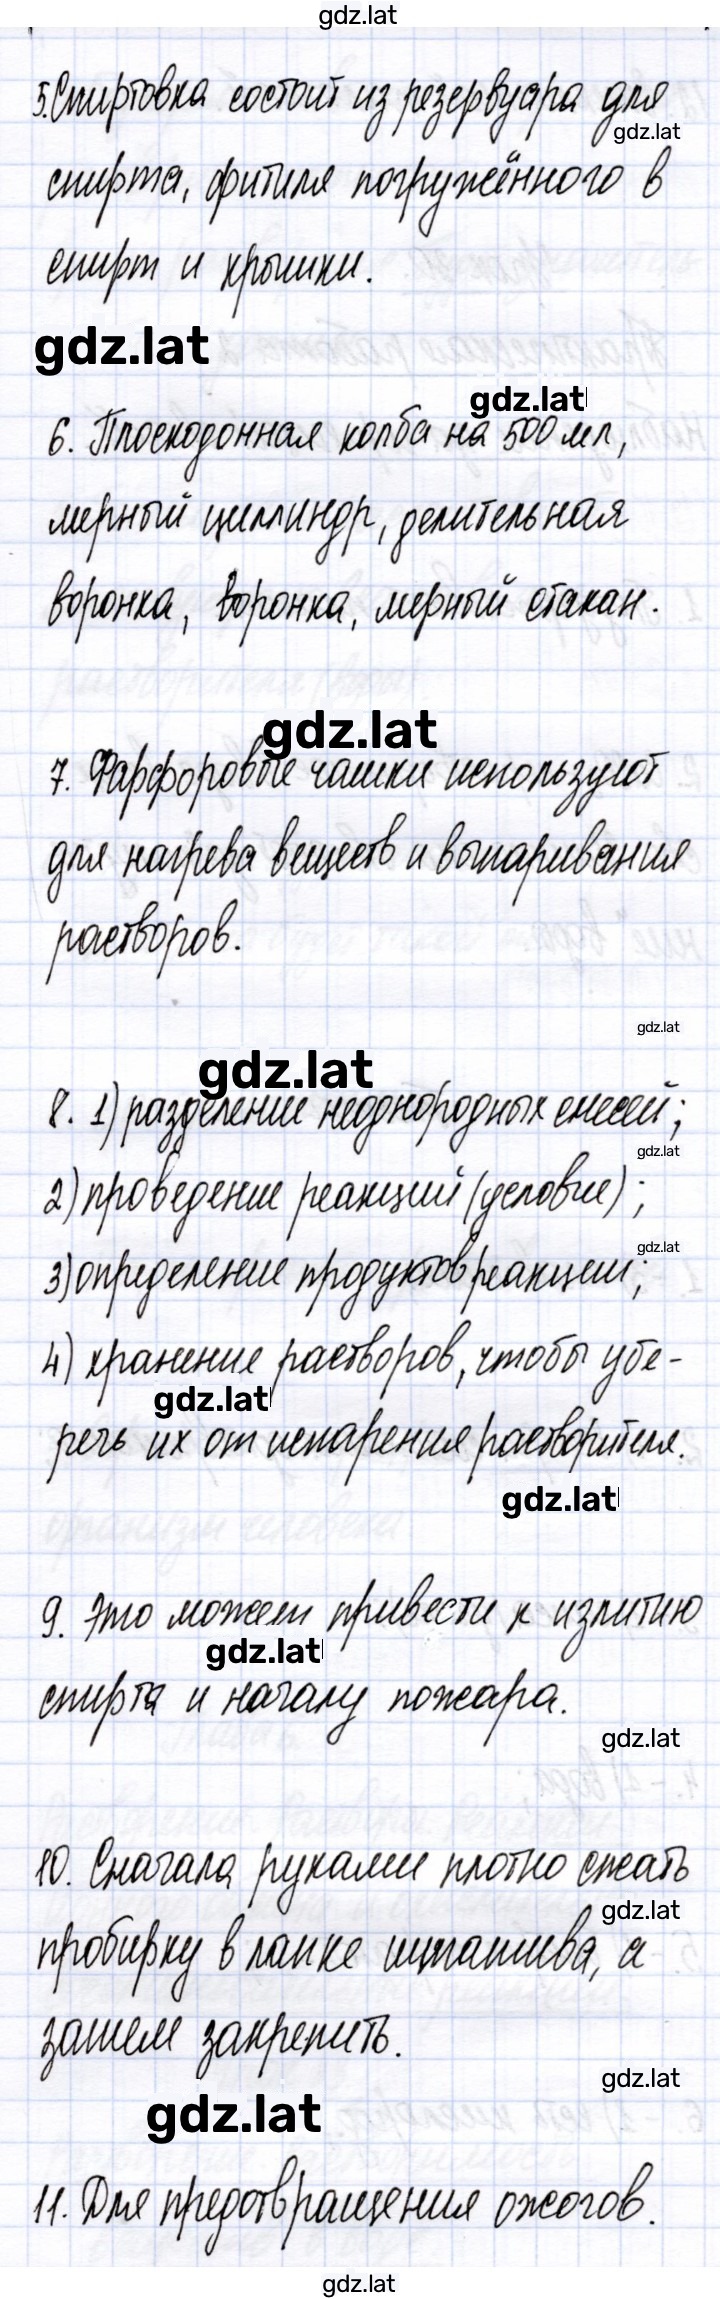 gdz.lat
5. Спиртовка состоит из резервуара для
gdz.lat
спирта, фитиля погружённого в
спирт и крышки.
gdz.lat
gdz.lat
6. Плоскодонная колба на 500 мл,
мерный циллиндр, делительная
воронка, воронка, мерный стакан.
gdz.lat
7. Фарфоровые чашки используют
для нагрева веществ и выпаривания
растворов.
gdz.lat
gdz.lat
8. 1) разделение неоднородных смесей;
gdz.lat
2) проведение реакций (условие);
gdz.lat
3) определение продуктов реакции;
4) хранение растворов, чтобы убе-
gdz.lat
речь их от испарения растворителя.
gdz.lat
9. Это может привести к излитию
gdz.lat
спирта и началу пожара.
gdz.lat
10. Сначала руками плотно сжать
gdz.lat
пробирку в лапке штатива, а
затем закрепить.
gdz.lat
gdz.lat
11. Для предотвращения ожогов.
gdz.lat